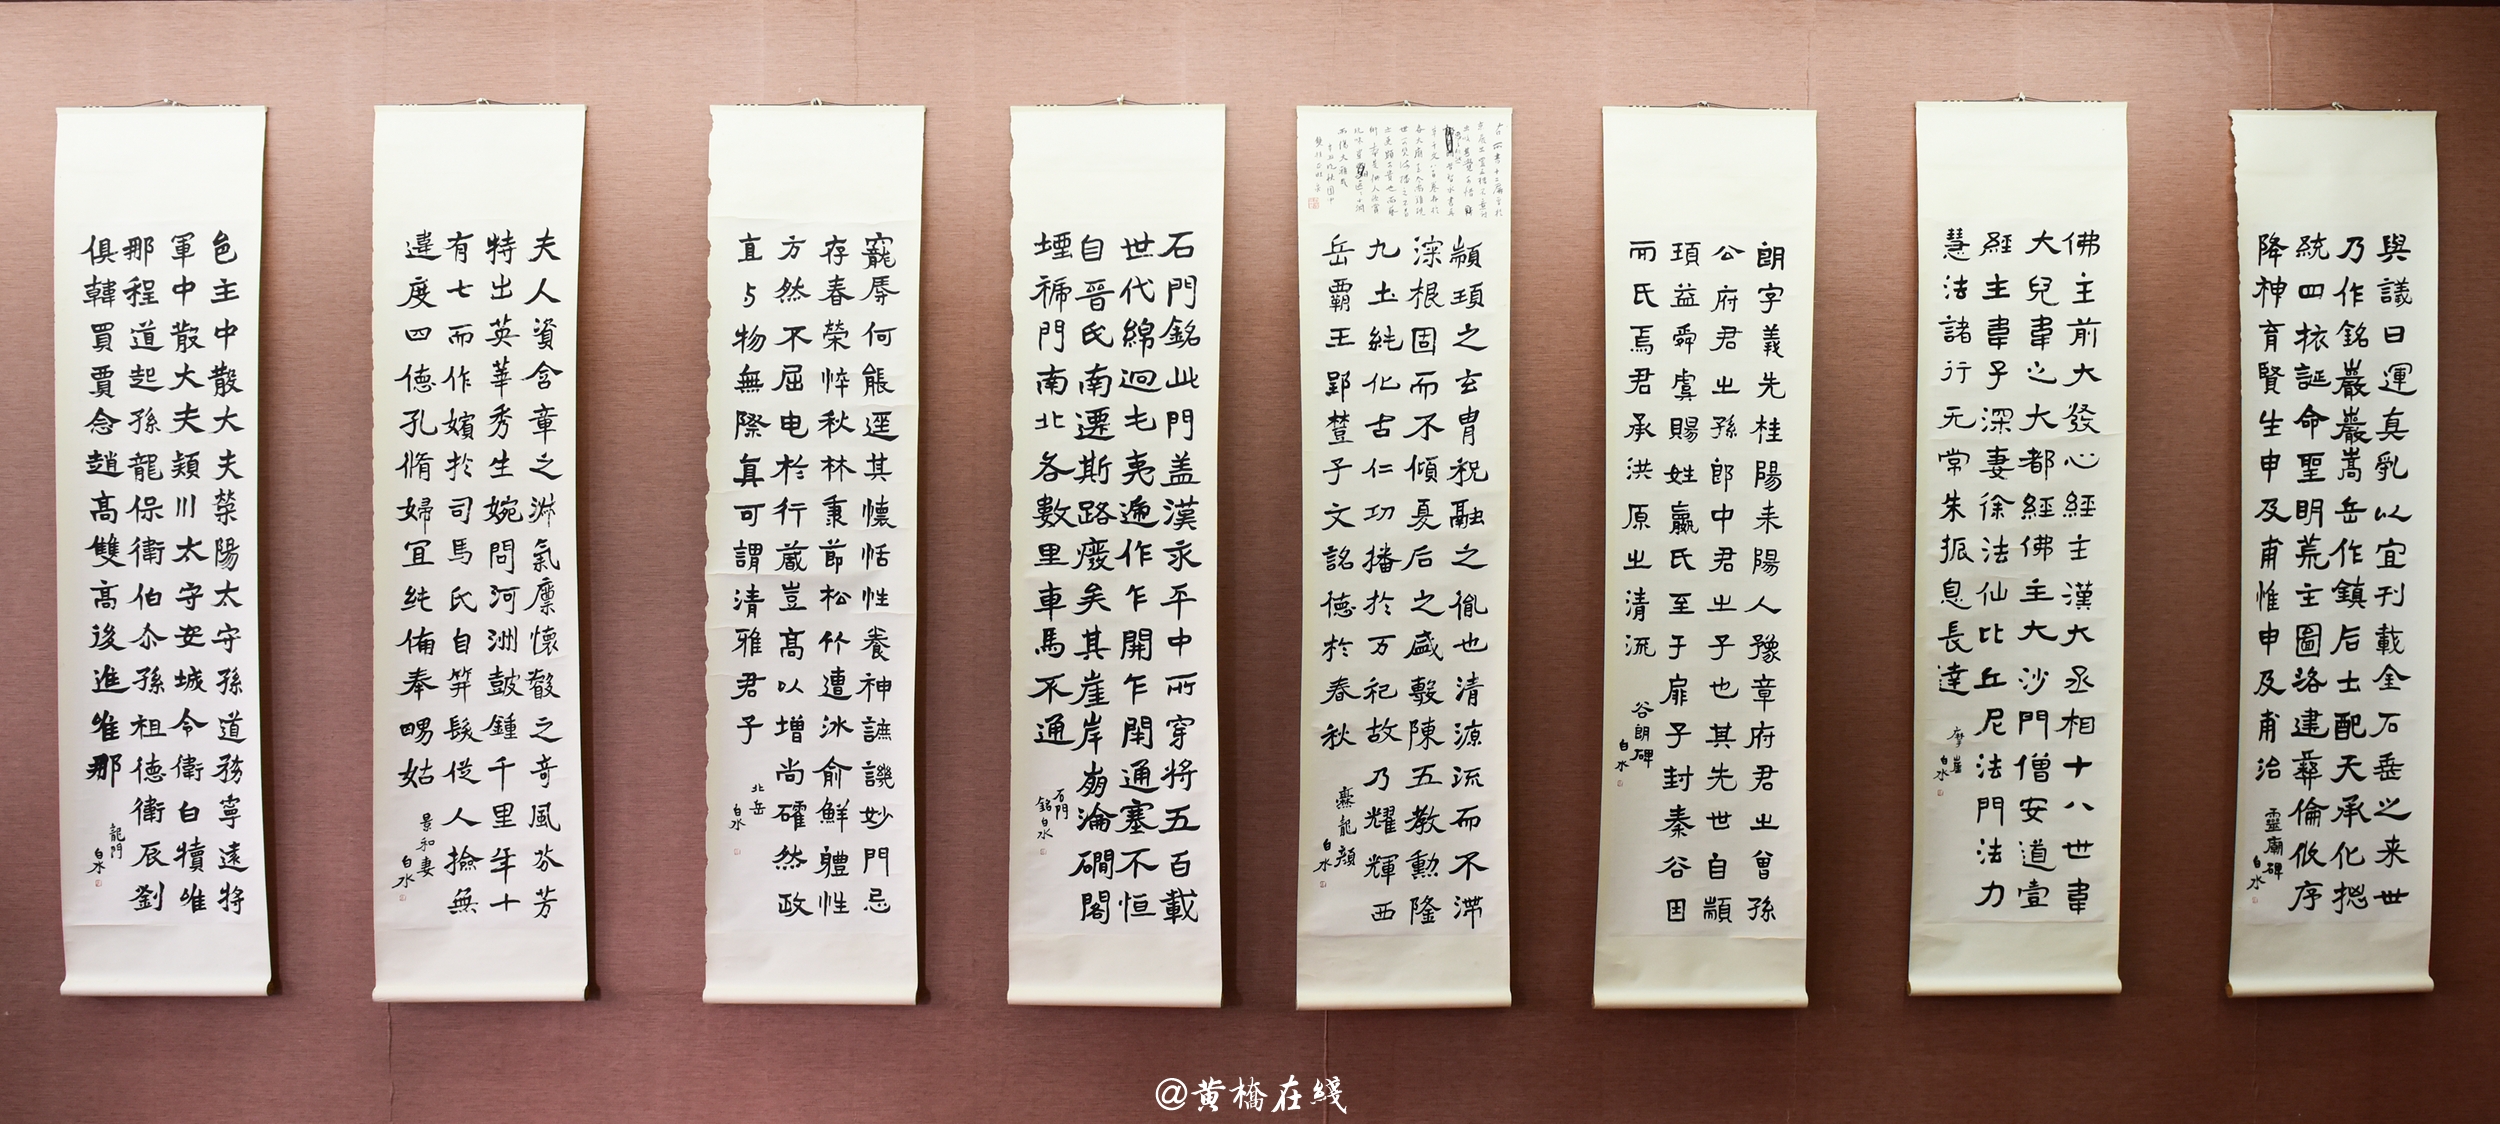 與議曰運真乳以宜刊載金石垂之来世
乃作銘巖巖嵩岳作鎮后土配天承化揔
統四祑誕命聖明荒主圖洛建彝倫攸序
降神育賢生申及甫惟申及甫治
靈廟碑
白水
佛主前大發心經主漢大丞相十八世韋
大兒韋之大都經佛主大沙門僧安道壹
經主韋子深妻徐法仙比丘尼法門法力
慧法諸行无常朱振息長達
摩崖
白水
朗字義先桂陽耒陽人豫章府君之曾孫
公府君之孫郎中君之子也其先世自顓
頊益舜虞賜姓嬴氏至于扉子封秦谷因
而氏焉君承洪原之清流
谷朗碑
白水
顓頊之玄胄祝融之胤也清源流而不滯
深根固而不傾夏后之盛敷陳五教勳隆
九土純化古仁功播於万祀故乃耀輝西
岳霸王郢楚子文詺德於春秋
爨龍顔
白水
石門銘此門盖漢永平中所穿將五百載
世代綿迴屯夷遞作乍開乍閉通塞不恒
自晉氏南遷斯路廢矣其崖岸崩淪磵閣
堙褫門南北各數里車馬不通
石門
銘白水
寵辱何能逕其懷恬性養神誌譏妙門忌
存春榮悴秋林秉節松竹遭冰俞鮮體性
方然不屈电於行蔵豈高以增尚確然政
直与物無際真可謂清雅君子
北岳
白水
夫人資含章之淋氣廪懷叡之奇風芬芳
特出英華秀生婉問河洲鼓鍾千里年十
有七而作嬪於司馬氏自笄髮從人撿無
違度四德孔脩婦宜純備奉嘒姑
景和妻
白水
邑主中散大夫滎陽太守孫道務寧遠將
軍中散大夫潁川太守安城令衛白犢唯
那程道起孫龍保衛伯尒孫祖德衛辰劉
俱韓買賈念趙高雙高後進唯那
龍門
白水
@黄橋在綫